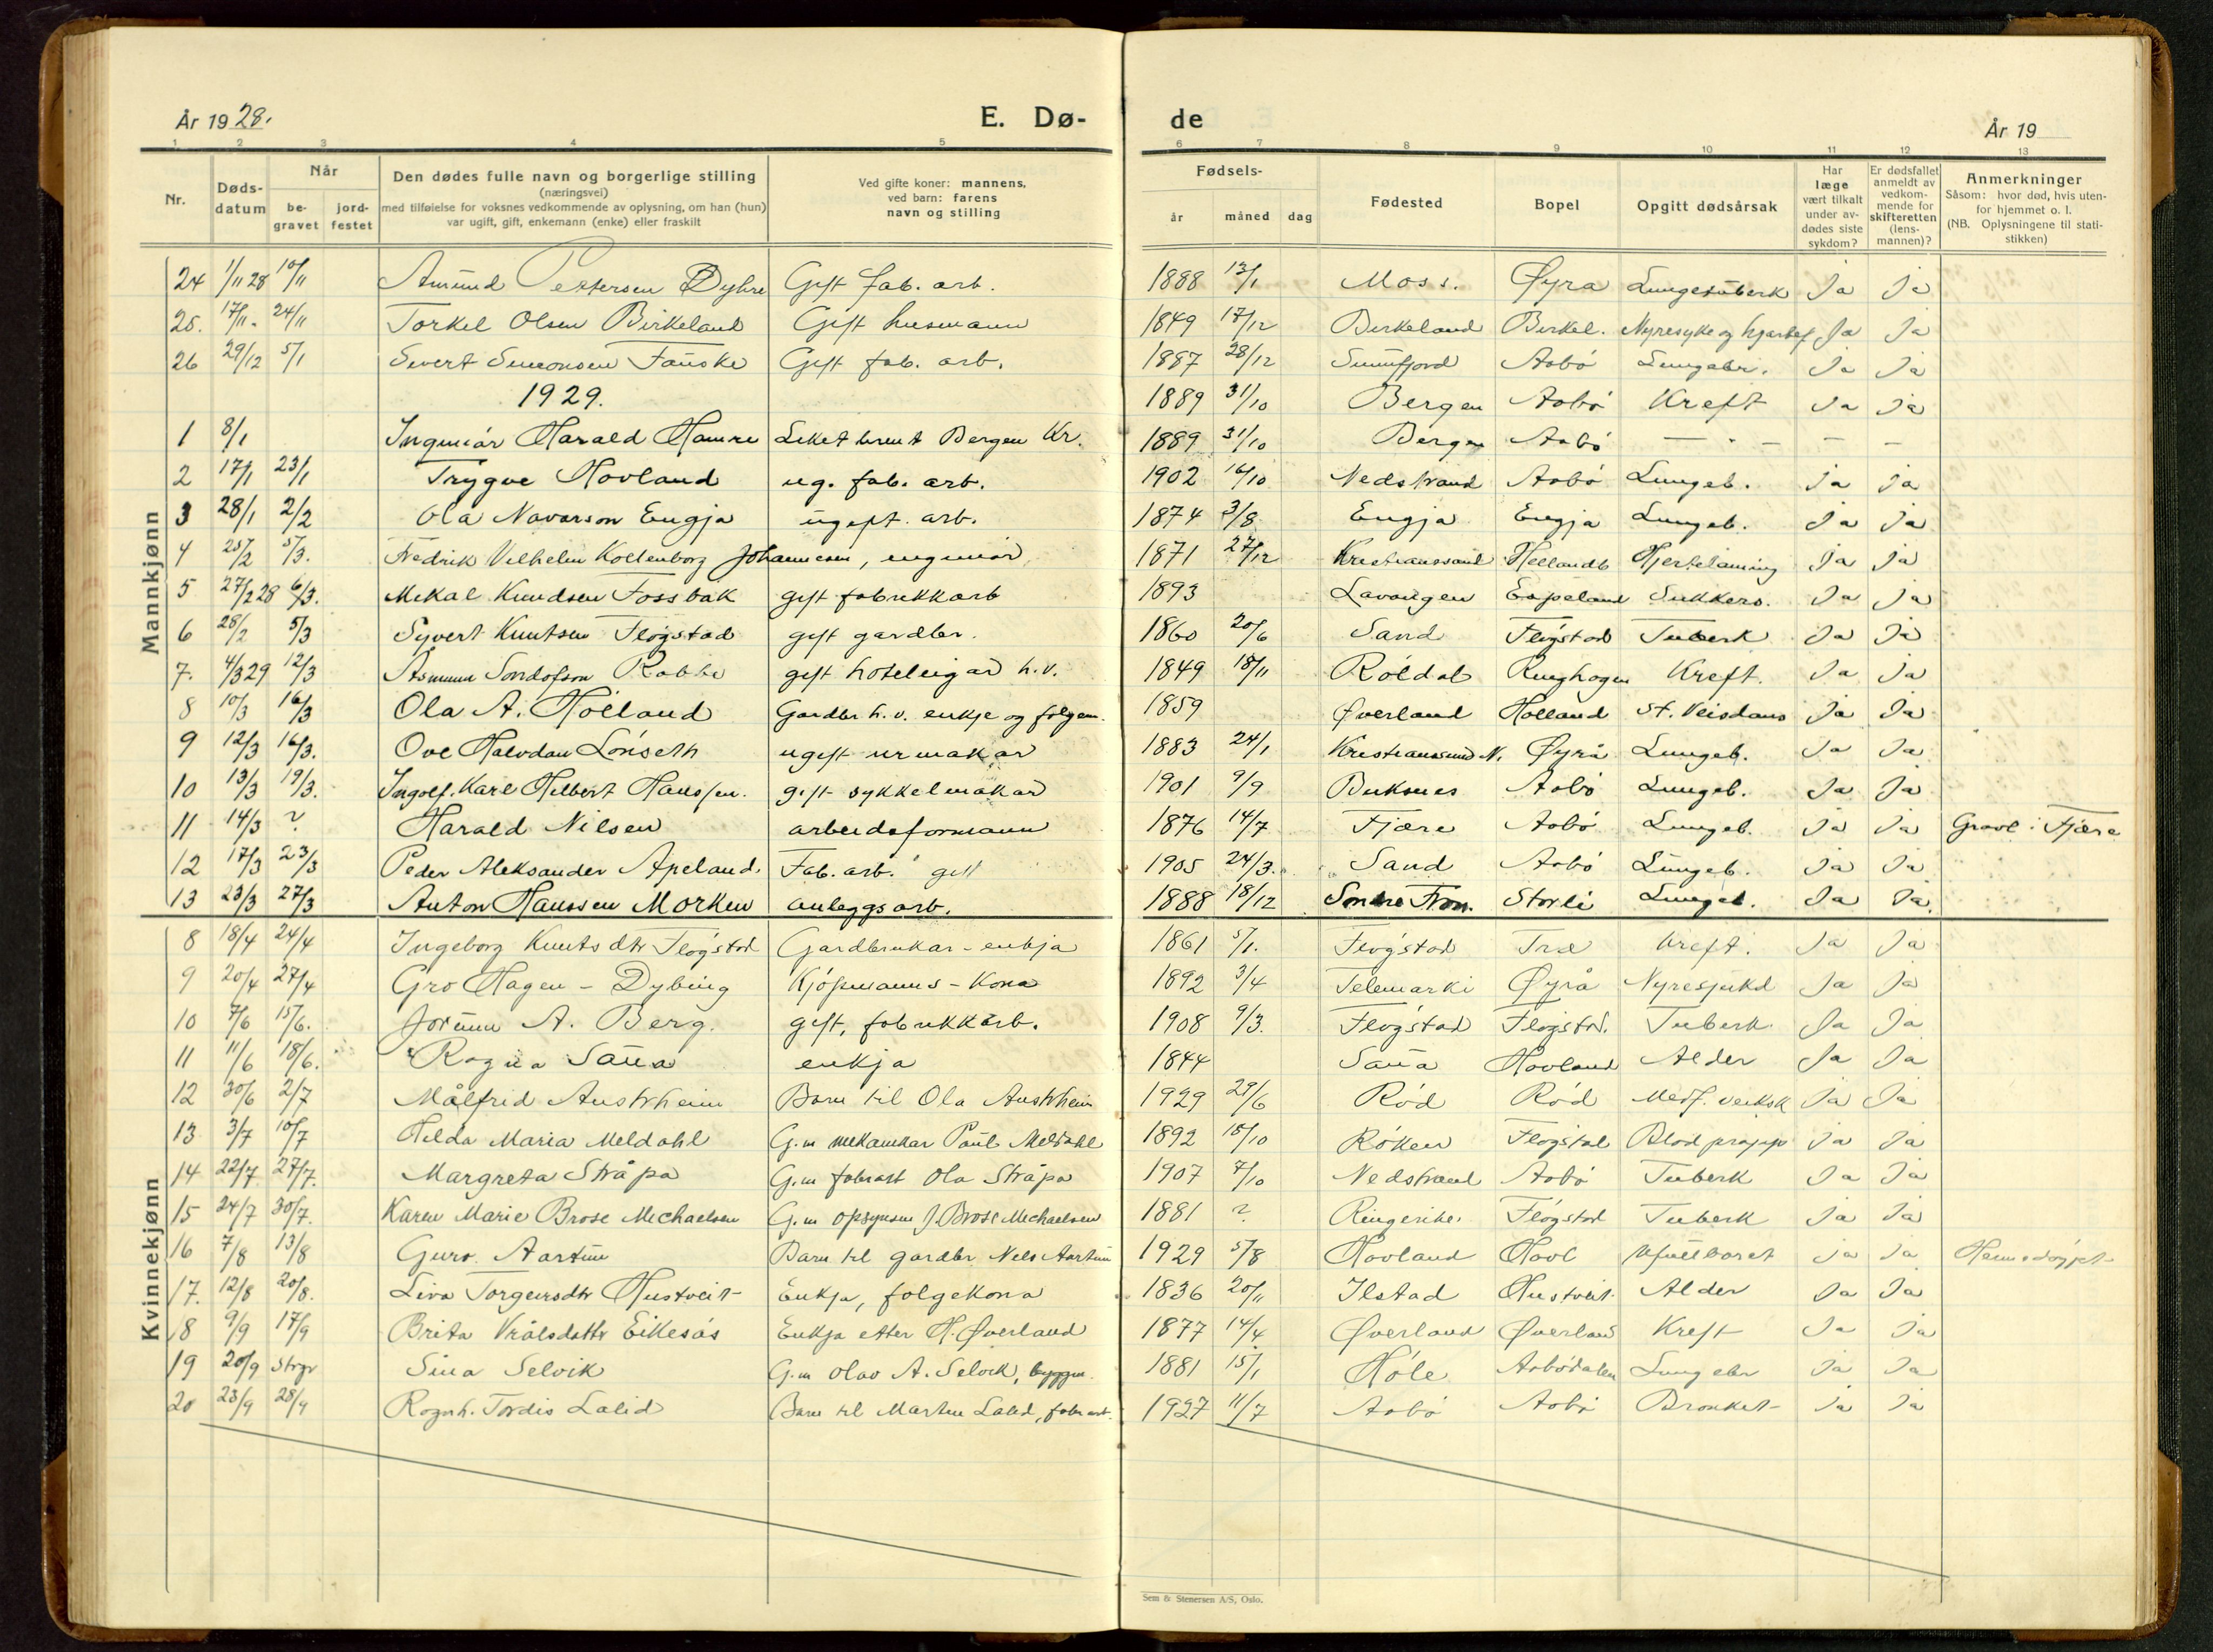 År 1928.
E. Dø-
de
År 19
1 2 3 4 5 6 7 8 9 10 11 12 13
Nr.
Døds-
datum
Når
be-
gravet
jord-
festet
Den dødes fulle navn og borgerlige stilling
(næringsvei)
med tilføielse for voksnes vedkommende av oplysning, om han (hun)
var ugift, gift, enkemann (enke) eller fraskilt
Ved gifte koner: mannens,
ved barn: farens
navn og stilling
Fødsels-
år måned dag
Fødested
Bopel
Opgitt dødsårsak
Har
læge
vært tilkalt
under av-
dødes siste
sykdom?
Er dødsfallet
anmeldt av
vedkom-
mende for
skifteretten
(lens-
mannen)?
Anmerkninger
Såsom: hvor død, hvis uten-
for hjemmet o. l.
(NB. Oplysningene til stati-
stikken)
Mannkjønn
24 1/11 28 10/11 Amund Pettersen Dyhre Gift fab. arb. 1888 13/1 Moss. Øyra Lungetuberk Ja Ja
25. 17/11 24/11 Torkel Olsen Birkeland Gift husmann 1849 17/12 Birkeland Birkel. Nyresyke og hjartef Ja Ja
26 29/12 5/1 Sivert Simonsen Fauske Gift fab. arb. 1887 28/12 Sunnfjord Aobö Lungebr. Ja Ja
1929. 1889 31/10 Bergen Aobö Kreft Ja Ja
1 8/1 Ingeniör Harald Hamre Liket brent Bergen Kr. 1889 31/10 Bergen Aobö — " — — —
2 17/1 23/1 Trygve Hovland ug. fab. arb. 1902 16/10 Nedstrand Aobö Lungeb. Ja Ja
3 28/1 2/2 Ola Navarson Engja ugift. arb. 1874 3/8 Engja Engja Lungeb. Ja Ja
4 25/2 5/3. Fredrik Vilhelm Koltenborg Johannesen, ingeniör 1871 27/12 Kristianssand Hellandb Hjertelamming Ja Ja
5 27/2 28 6/3. Mikal Knudsen Fossbak gift fabrikkarb 1893 Lavangen Eapeland Sukkers. Ja Ja
6 28/2 5/3 Syvert Knutsen Flögstad gift gardbr. 1860 20/6 Sand Flögstad Tuberk Ja Ja
7. 4/3 29 12/3 Asmunn Sondofson Rabbe gift hoteleigar h.v. 1849 18/11 Röldal Ringhagen Kreft. Ja Ja
8 10/3 16/3 Ola A. Hölland Gardbr h.v. enkje og folgem. 1859 Øverland Hölland St. Veisdans Ja Ja
9 12/3 16/3. Ove Halvdan Lönseth ugift urmakar 1883 24/1 Kristianssund N. Øyrå Lungeb. Ja Ja
10 13/3 19/3. Ingolf. Karl Helbert Hanssen. gift sykkelmakar 1901 9/9 Buksnes Aobö Lungeb. Ja Ja
11 14/3 ? Harald Nilsen arbeidsformann 1876 14/7 Fjære Aobö Lungeb. Ja Ja Gravl. i Fjære
12 17/3 23/3 Peder Aleksander Apeland. Fab. arb. gift 1905 24/3. Sand Aobö Lungeb. Ja Ja
13 23/3 27/3 Anton Hanssen Morken anleggsarb. 1888 18/12 Sondre Fron. Storli Lungeb. Ja Ja
Kvinnekjønn
8 18/4 24/4 Ingeborg Knutsdtr Flögstad Gardbrukar-enkja 1861 5/1. Flögstad Træ Kreft. Ja Ja
9 20/4 27/4 Gro Hagen - Dybing Kjöpmanns-Kona 1892 3/4 Telemarki Øyrå Nyresjukd Ja Ja
10 7/6 15/6. Jorunn A. Berg. gift, fabrikkarb. 1908 9/3. Flögstad Flögstad. Tuberk Ja Ja
11 11/6 18/6. Ragna Saua enkja 1844 Saua Hovland Alder Ja Ja
12 30/6 2/7 Målfrid Austrheim Barn til Ola Austrheim 1929 29/6 Röd Röd Medf. veiksk Ja Ja
13 3/7 10/7 Hilda Maria Meldahl G.m mekanikar Paul Meldahl 1892 18/10 Röken Flögstad Blodpropp Ja Ja
14 22/7 27/7. Margreta Stråpa G.m fabrarb Ola Stråpa 1907 7/10 Nedstrand Aobö Tuberk Ja Ja
15 24/7 30/7. Karen Marie Brose Michaelsen G.m opsynsm J. Brose Michaelsen 1881 ? Ringerike Flögstad Tuberk Ja Ja
16 7/8 13/8 Guro Aartun Barn til gardbr Nils Aartun 1929 5/8 Hovland Hovl Ufullboret Ja Ja Heimedöypt
17. 12/8 20/8. Liva Torgeirsdtr Hustveit Enkja, folgekona 1836 20/11 Ilstad Hustveit Alder Ja Ja
18 9/9 17/9 Brita Vrålsdattr Eikesås Enkja etter H. Øverland 1877 14/4 Øverland Øverland Kreft Ja Ja
19 20/9 Sina Selvik G.m Olav A. Selvik, 1881 15/1 Höle Aobödalen Lungebr Ja Ja
20 23/9 28/9 Ragnh. Tordis Lalid Barn til Martin Lalid, fabr arb. 1927 11/7 Aobö Aobö Bronkit Ja Ja
Sem & Stenersen A/S, Oslo.